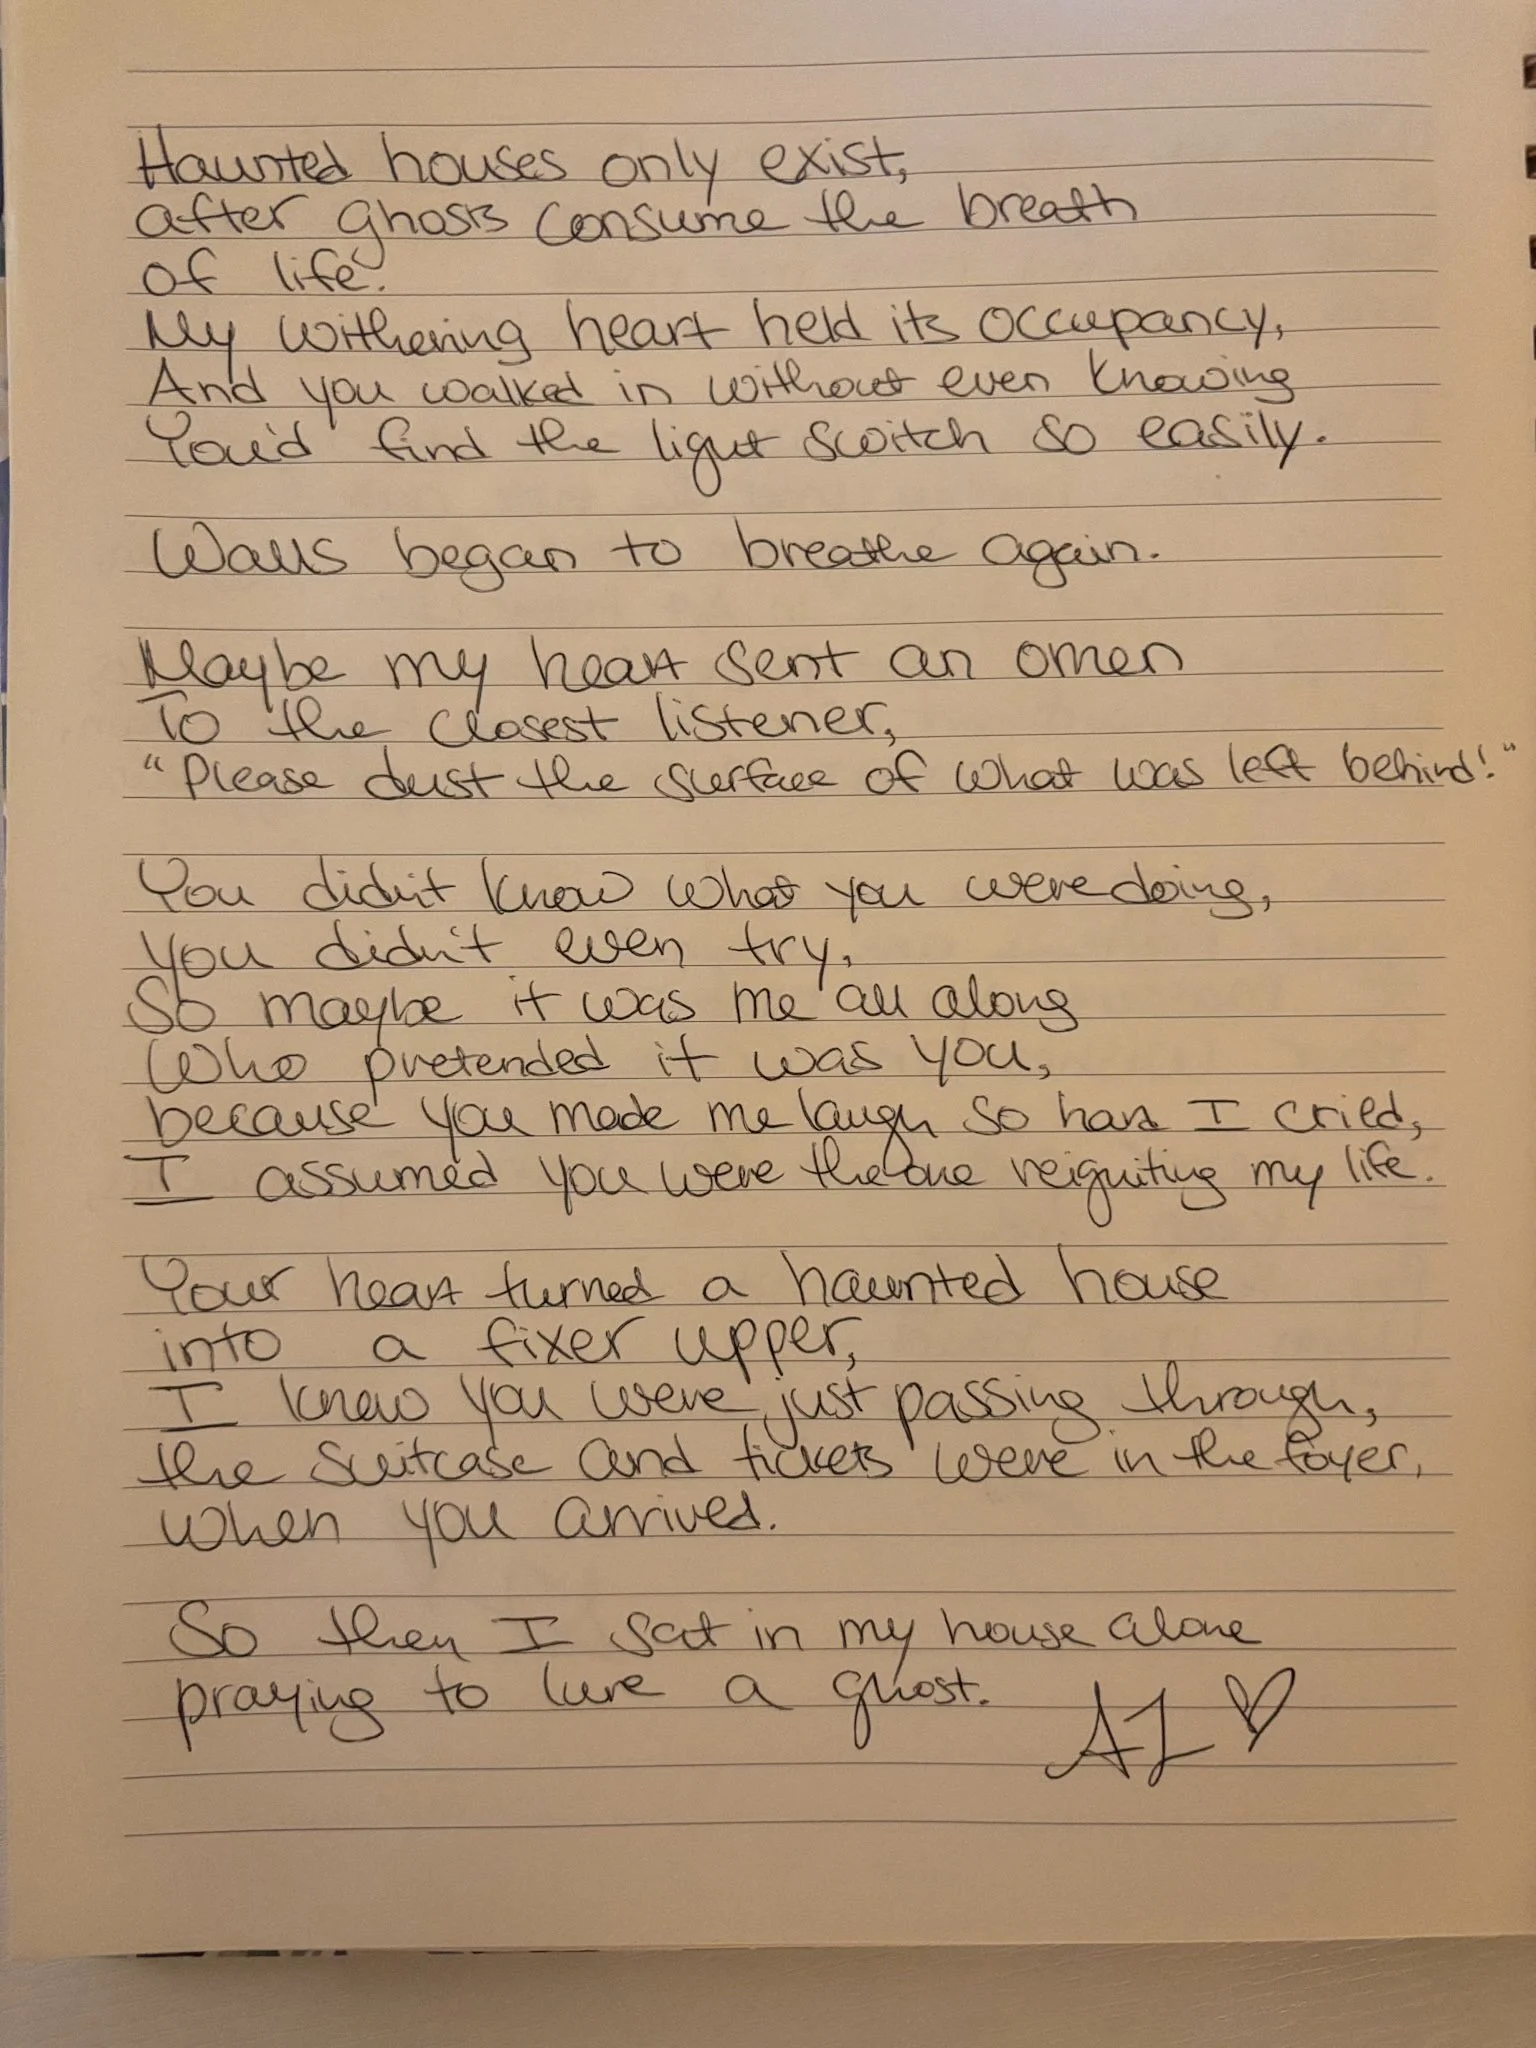 Haunted houses only exist,
after ghosts consume the breath
of life.
My withering heart held its occupancy,
And you walked in without even knowing
You'd find the light switch so easily.
Walls began to breathe again.
Maybe my heart sent an omen
To the closest listener,
"Please dust the surface of what was left behind!"
You didn't know what you were doing,
you didn't even try,
So maybe it was me all along
Who pretended it was you,
because you made me laugh so hard I cried,
I assumed you were the one reigniting my life.
Your heart turned a haunted house
into a fixer upper,
I knew you were just passing through,
the suitcase and tickets were in the foyer,
when you arrived.
So then I sat in my house alone
praying to lure a ghost.
AL